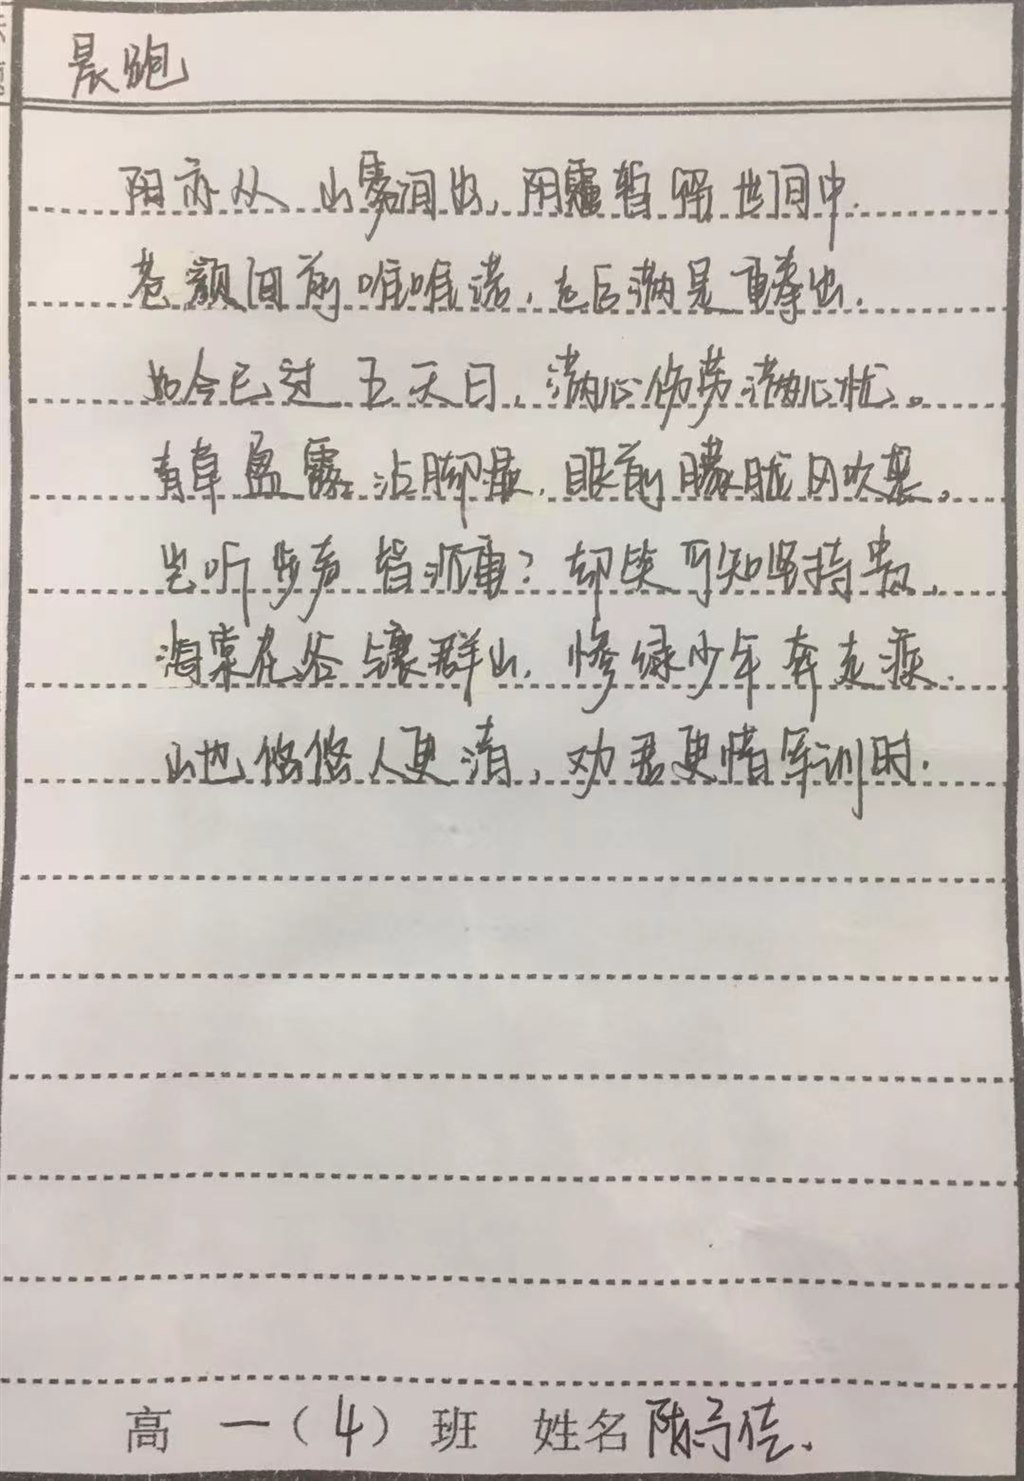 晨跑
阳亦从山雾间出,阴霾暂隐世间中.
苍颜间前唯唯诺,走后满是重拳出.
如今已过五天日,满心伤劳满心忧。
青草盈露沾脚痕,眼前朦胧风吹裹。
岂听步声皆沉重?却笑可知坚持贵.
海棠花谷与襄群山,惨绿少年奔走疾.
山也悠悠人更清,劝君更惜军训时.
高一(4)班 姓名